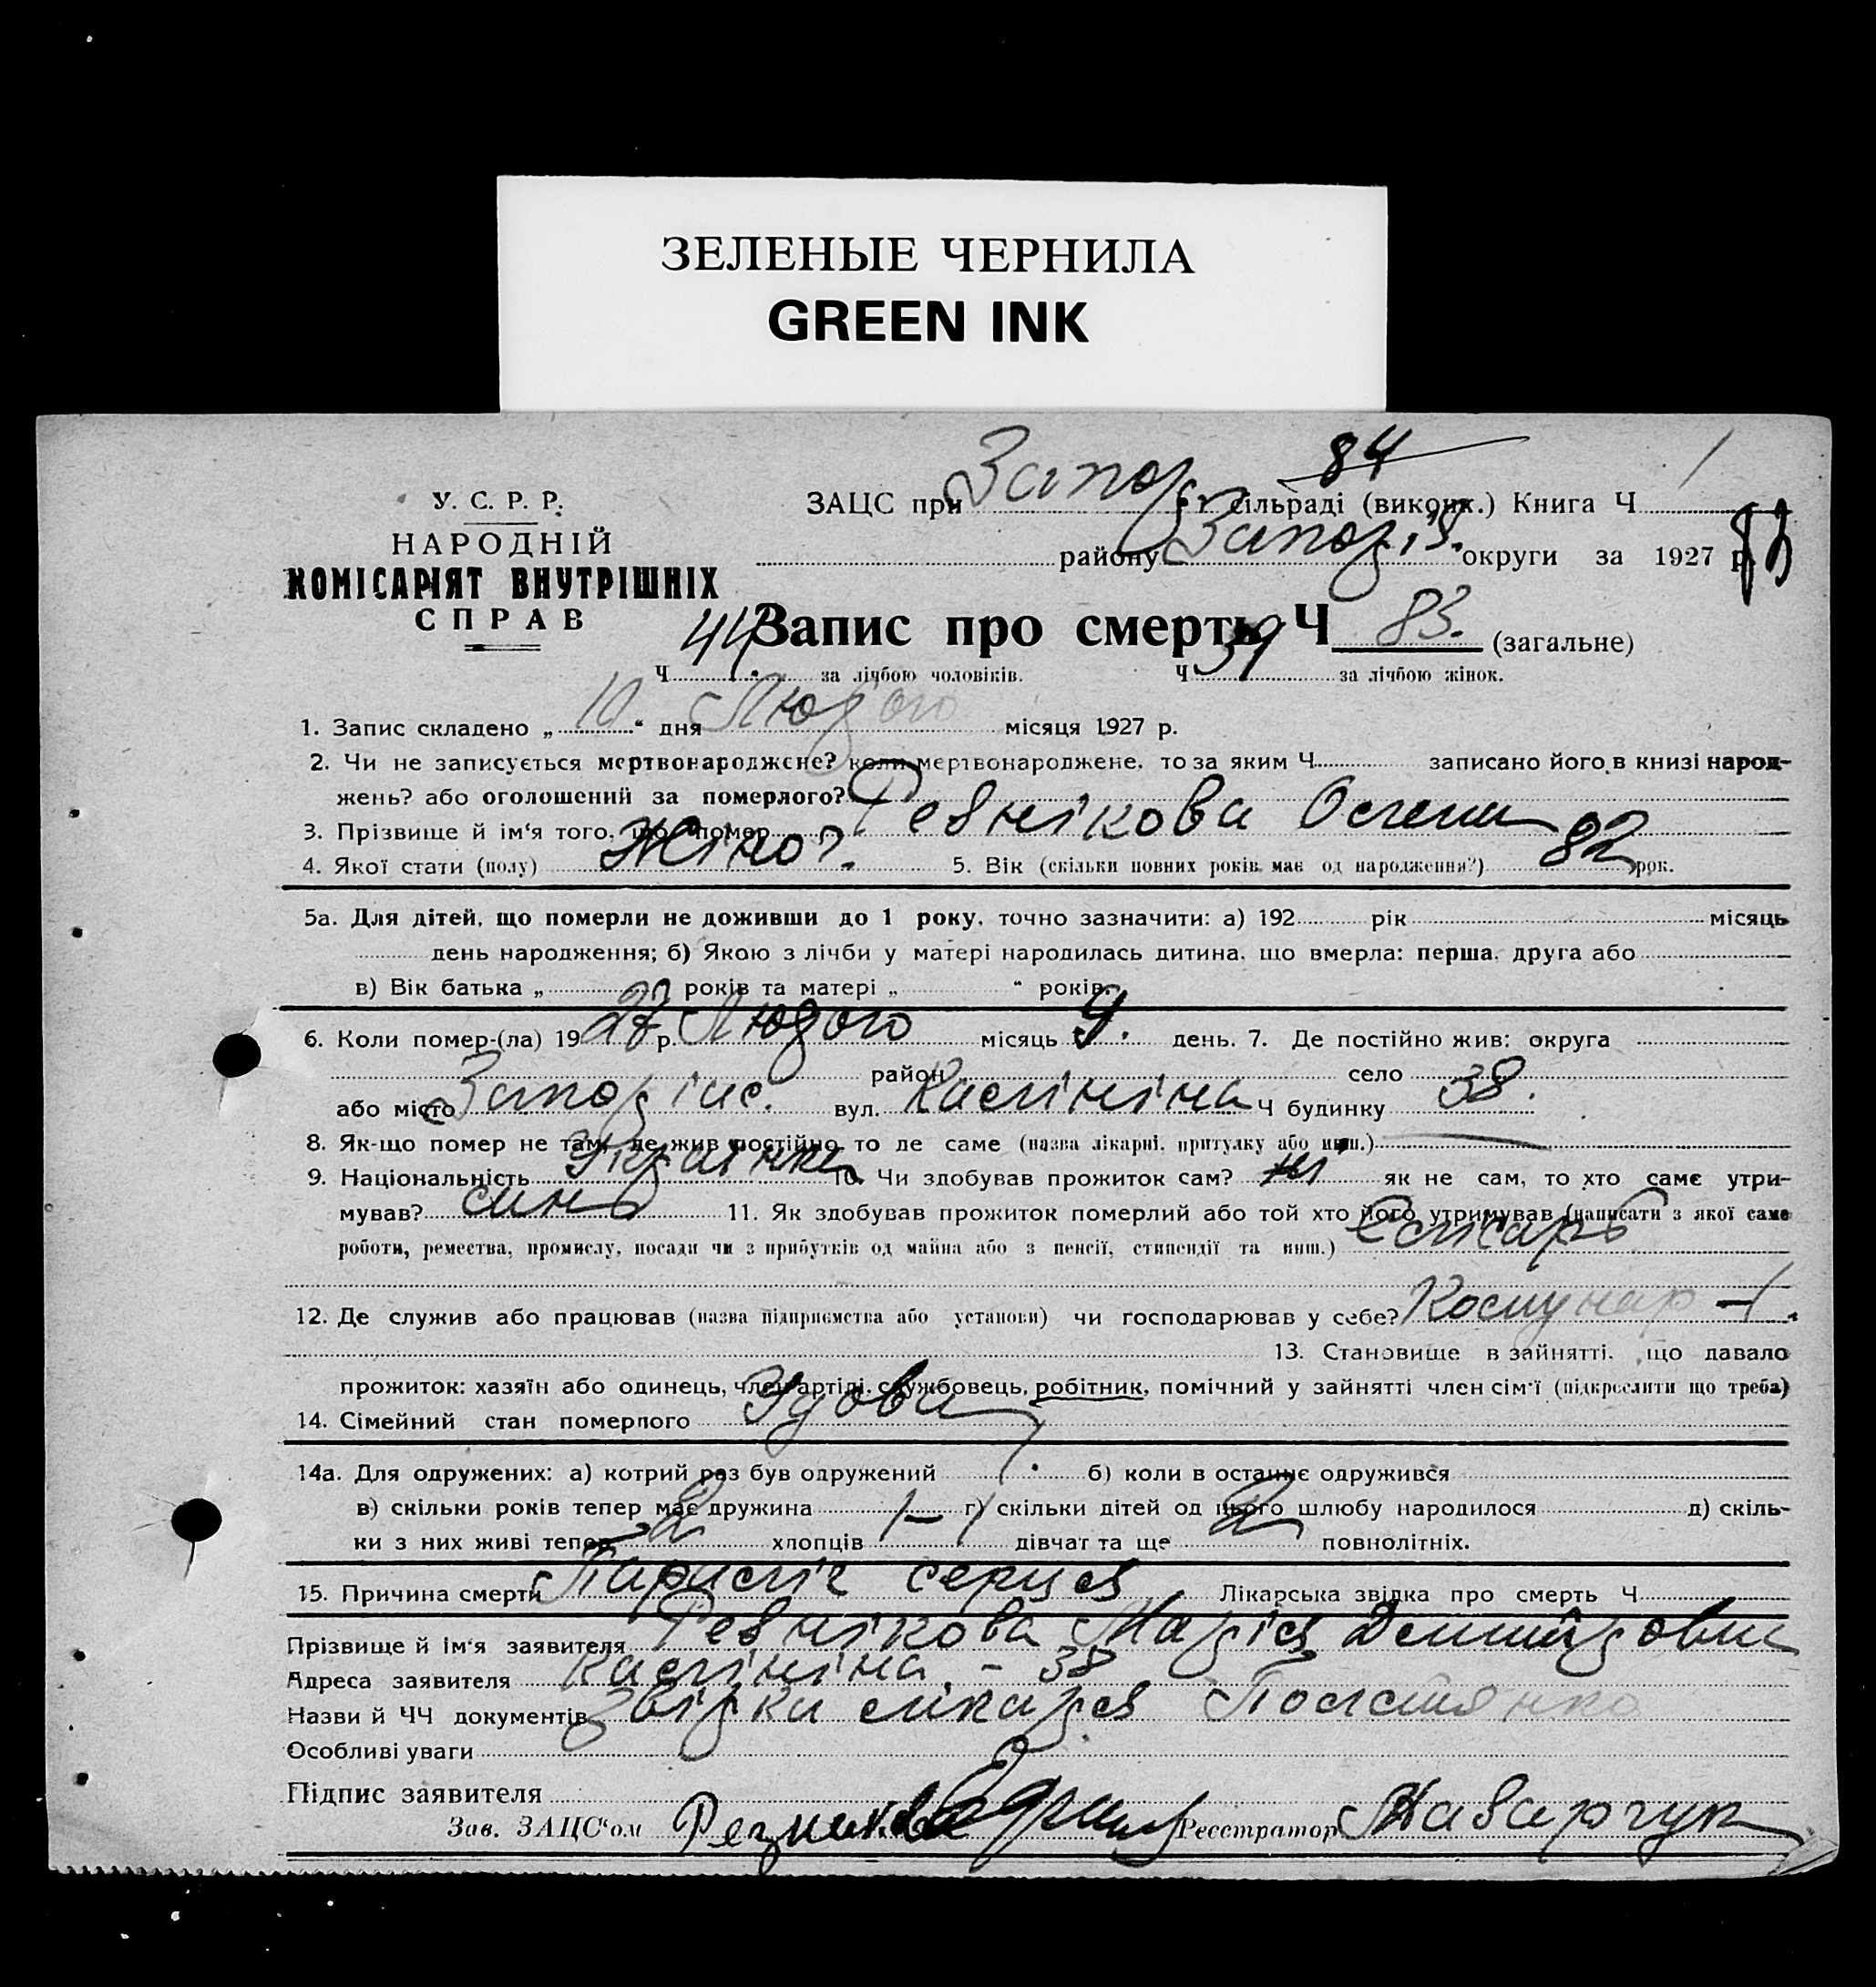 ЗЕЛЕНЫЕ ЧЕРНИЛА
GREEN INK
У. С. Р. Р.
НАРОДНІЙ
КОМІСАРІЯТ ВНУТРІШНІХ
СПРАВ
84
ЗАЦС при Запор. сільраді (виконк.) Книга Ч 1
району Запоріз. округи за 1927 р. 83
Запис про смерть Ч 83. (загальне)
Ч 44 за лічбою чоловіків. Ч 39 за лічбою жінок.
1. Запис складено „ 10 “ дня Лютого місяця 1927 р.
2. Чи не записується мертвонароджене? коли мертвонароджене, то за яким Ч записано його в книзі народ-
жень? або оголошений за померлого?
3. Прізвище й ім‘я того, що помер Ревнікова Олена
4. Якої стати (полу) Жіноч. 5. Вік (скільки повних років має од народження?) 82 рок.
5а. Для дітей, що померли не доживши до 1 року, точно зазначити: а) 192 рік місяць
день народження; б) Якою з лічби у матері народилась дитина, що вмерла: перша, друга або
в) Вік батька „ “ років та матері „ “ років.
6. Коли помер-(ла) 1927 р. Лютого місяць 9. день. 7. Де постійно жив: округа
район село
або місто Запоріжс. вул. Калініна Ч будинку 38.
8. Як-що помер не там, де жив постійно то де саме (назва лікарні, притулку або инш.)
9. Національність Українка 10. Чи здобував прожиток сам? ні як не сам, то хто саме утри-
мував? синь 11. Як здобував прожиток померлий або той хто його утримував (написати з якої саме
роботи, ремества, промислу, посади чи з прибутків од майна або з пенсії, стипендії та инш.) Слюсарь
12. Де служив або працював (назва підприємства або установи) чи господарював у себе? Комунар - 1.
13. Становище в зайнятті, що давало
прожиток: хазяїн або одинець, член артілі, службовець, робітник, помічний у зайнятті член сім‘ї (підкреслити що треба)
14. Сімейний стан померлого Удова
14а. Для одружених: а) котрий раз був одружений 1. б) коли в останнє одружився
в) скільки років тепер має дружина г) скільки дітей од цього шлюбу народилося д) скіль-
ки з них живі тепер 2 хлопців дівчат та ще 2 повнолітніх.
15. Причина смерти Параліч серця Лікарська звідка про смерть Ч
Прізвище й ім‘я заявителя Ревнікова Марія Демитровна
Адреса заявителя Калініна - 38
Назви й ЧЧ документів звідка лікаря
Особливі уваги
Підпис заявителя
Зав. ЗАЦС‘ом Реестратор